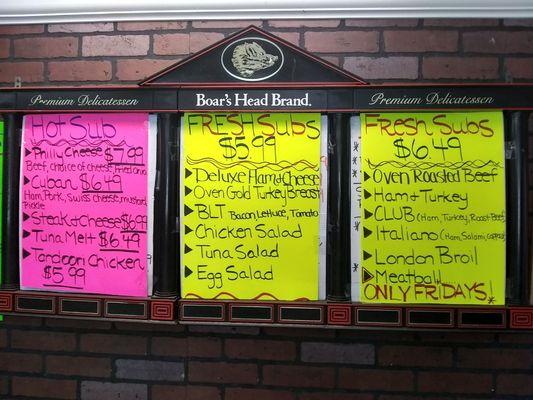 Boar's Head Brand.
Premium Delicatessen
Premium Delicatessen
Hot Sub
Philly Cheese $7.99
Beef, choice of cheese, fried onion
Cuban $6.49
Ham, Pork, Swiss cheese, mustard,
Pickle
Steak & Cheese $6.99
Tuna Melt $6.49
Tandoori Chicken
$5.99
FRESH SUBS
$5.99
Deluxe Ham & Cheese
Oven Gold Turkey Breast
BLT Bacon, Lettuce, Tomato
Chicken Salad
Tuna Salad
Egg Salad
Fresh Subs
$6.49
Oven Roasted Beef
Ham & Turkey
CLUB (Ham, Turkey, Roast Beef)
Italiano (Ham, Salami,
London Broil
Meatball
ONLY FRIDAYS!